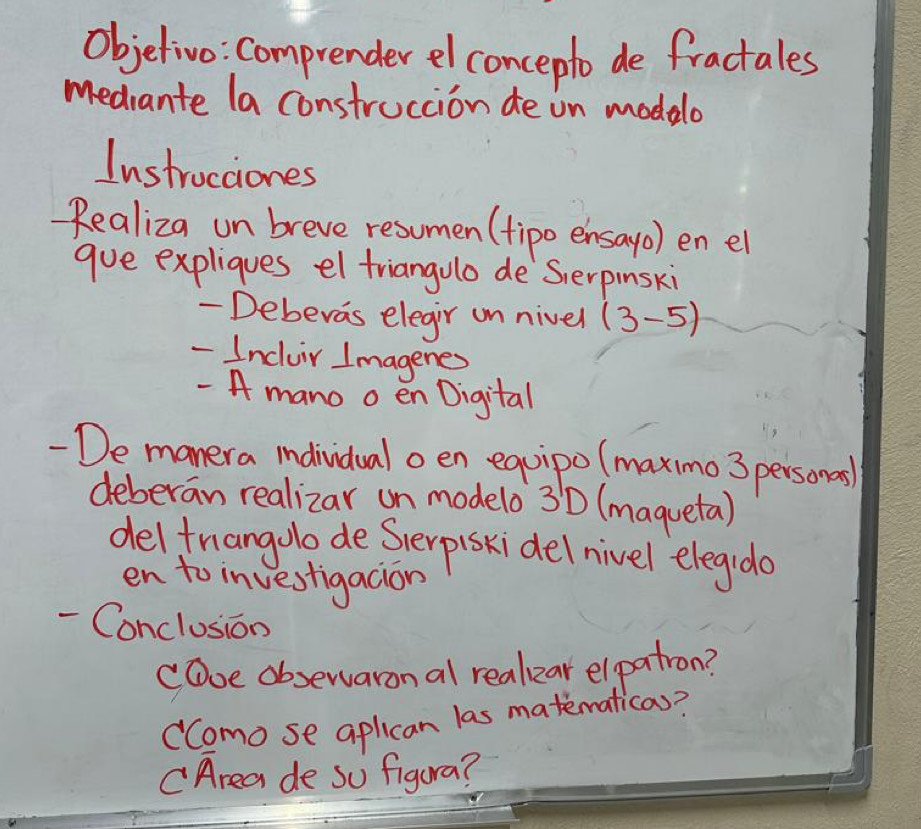 Objetivo: Comprender el concepto de fractales
mediante la construcción de un modelo
Instrucciones
-Realiza un breve resumen (tipo ensayo) en el
que expliques el triangulo de Sierpinski
- Deberás elegir un nivel (3-5)
- Incluir Imagenes
- A mano o en Digital
- De manera individual o en equipo (maximo 3 personas)
deberán realizar un modelo 3D (maqueta)
del triangulo de Sierpiski del nivel elegido
en tu investigación
- Conclusión
¿Que observaron al realizar el patron?
¿Como se aplican las matematicas?
¿Area de su figura?